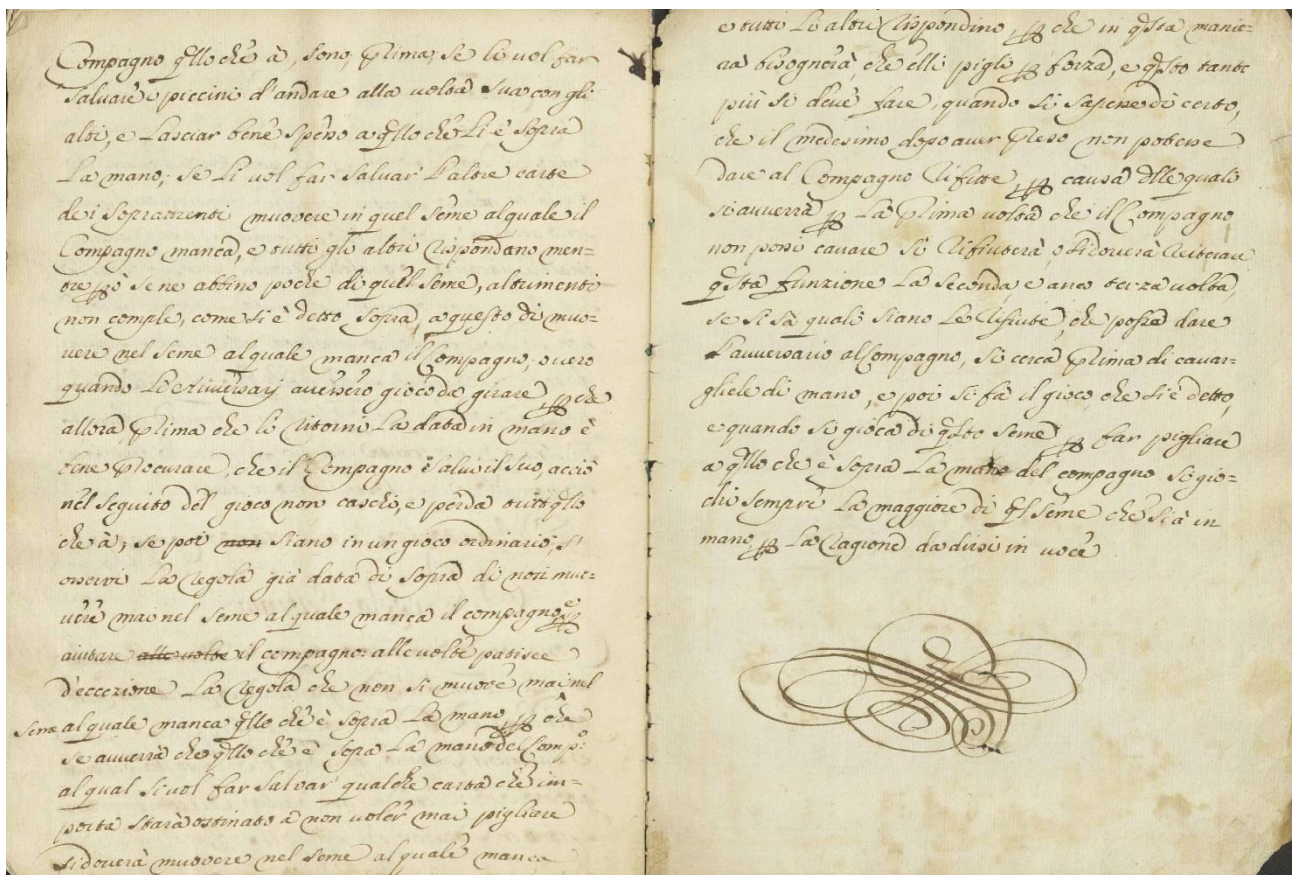 Compagno qllo che à, sono, prima; se li vol far
salvare e piccini d'andare alla volta sua con gli
altri, e lasciar bene spesso a qllo che li è sopra
la mano; se li vol far salvar l'altre carte
de i sopraventi muovere in quel seme al quale il
Compagno manca, e tutti gli altri rispondano men=
tre però se ne abbino poche di quel seme, altrimenti
non comple, come si è detto sopra, a questo di muo=
vere nel seme al quale manca il Compagno, overo
quando li Avversarj avessero gioco da girare p che
allora prima che li ritorni la data in mano è
bene procurare, che il Compagno salvi il suo, acciò
nel seguito del gioco non caschi, e perda tutto qllo
che à; se poi non siano in un gioco ordinario, s'
osservi la regola già data di sopra di non muo=
vere mai nel seme al quale manca il compagno
aiutare alle volte il compagno: alle volte patisce
d'eccezione la regola che non si muove mai nel
seme al quale manca qllo che è sopra la mano p che
se avverrà che qllo che è sopra la mano del Comp.º
al qual si vol far salvar qualche carta che im=
porta starà ostinato a non voler mai pigliare
si doverà muovere nel seme al quale manca
e tutti li altri rispondino, p che in qsta manie=
ra bisognerà, che elli pigli p forza, e qsto tanto
più si deve fare, quando si sapesse di certo,
che il medesimo dopo aver preso non potesse
dare al Compagno rifitte p causa dlle quali
si avverrà p la prima volta che il Compagno
non possi cavare si rifiuterà, e si doverà reiterare
qsta funzione la seconda, e anco terza volta,
se si sà quali siano le rifiute, che possa dare
l'avversario al Compagno, si cerca prima di cavar=
gliele di mano, e poi si fa il gioco, che si è detto,
e quando si gioca di qsto seme p far pigliare
a qllo che è sopra la mano del compagno si gio=
chi sempre la maggiore di ql seme che si à in
mano p la ragione da dirsi in voce